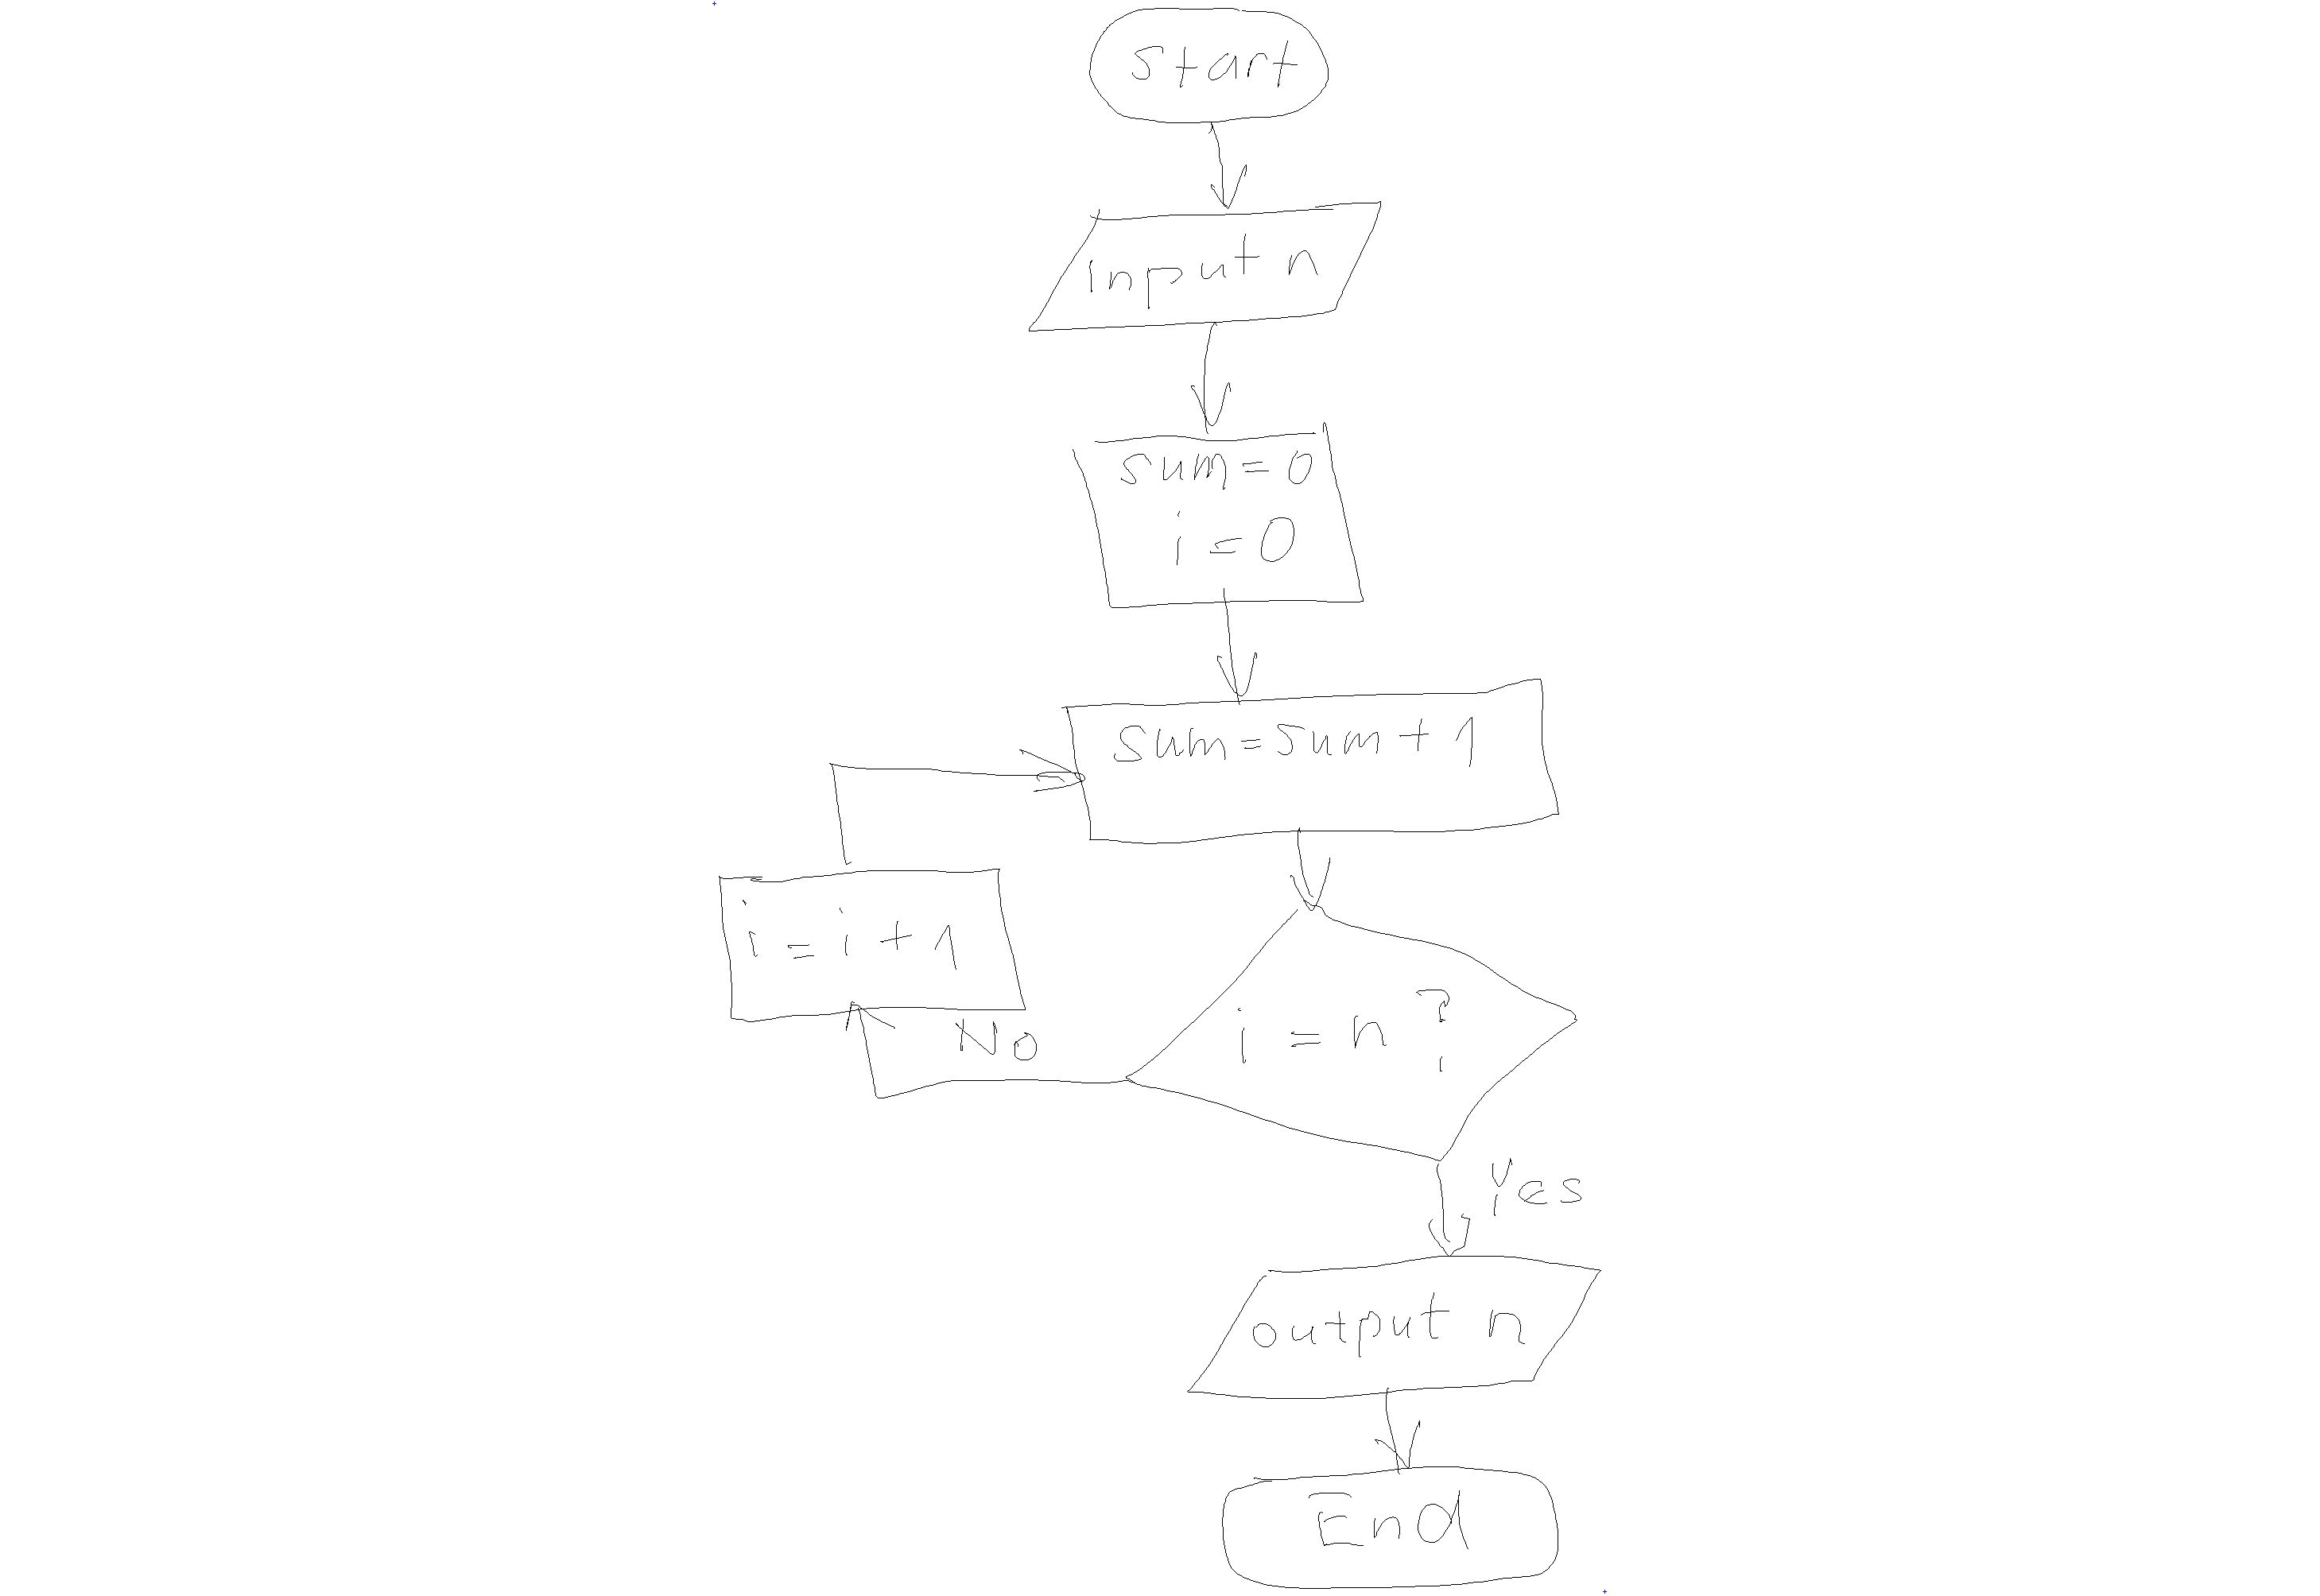 Start
input n
sum=0
i=0
sum=sum+1
i=i+1
No
i=n?
Yes
output n
End